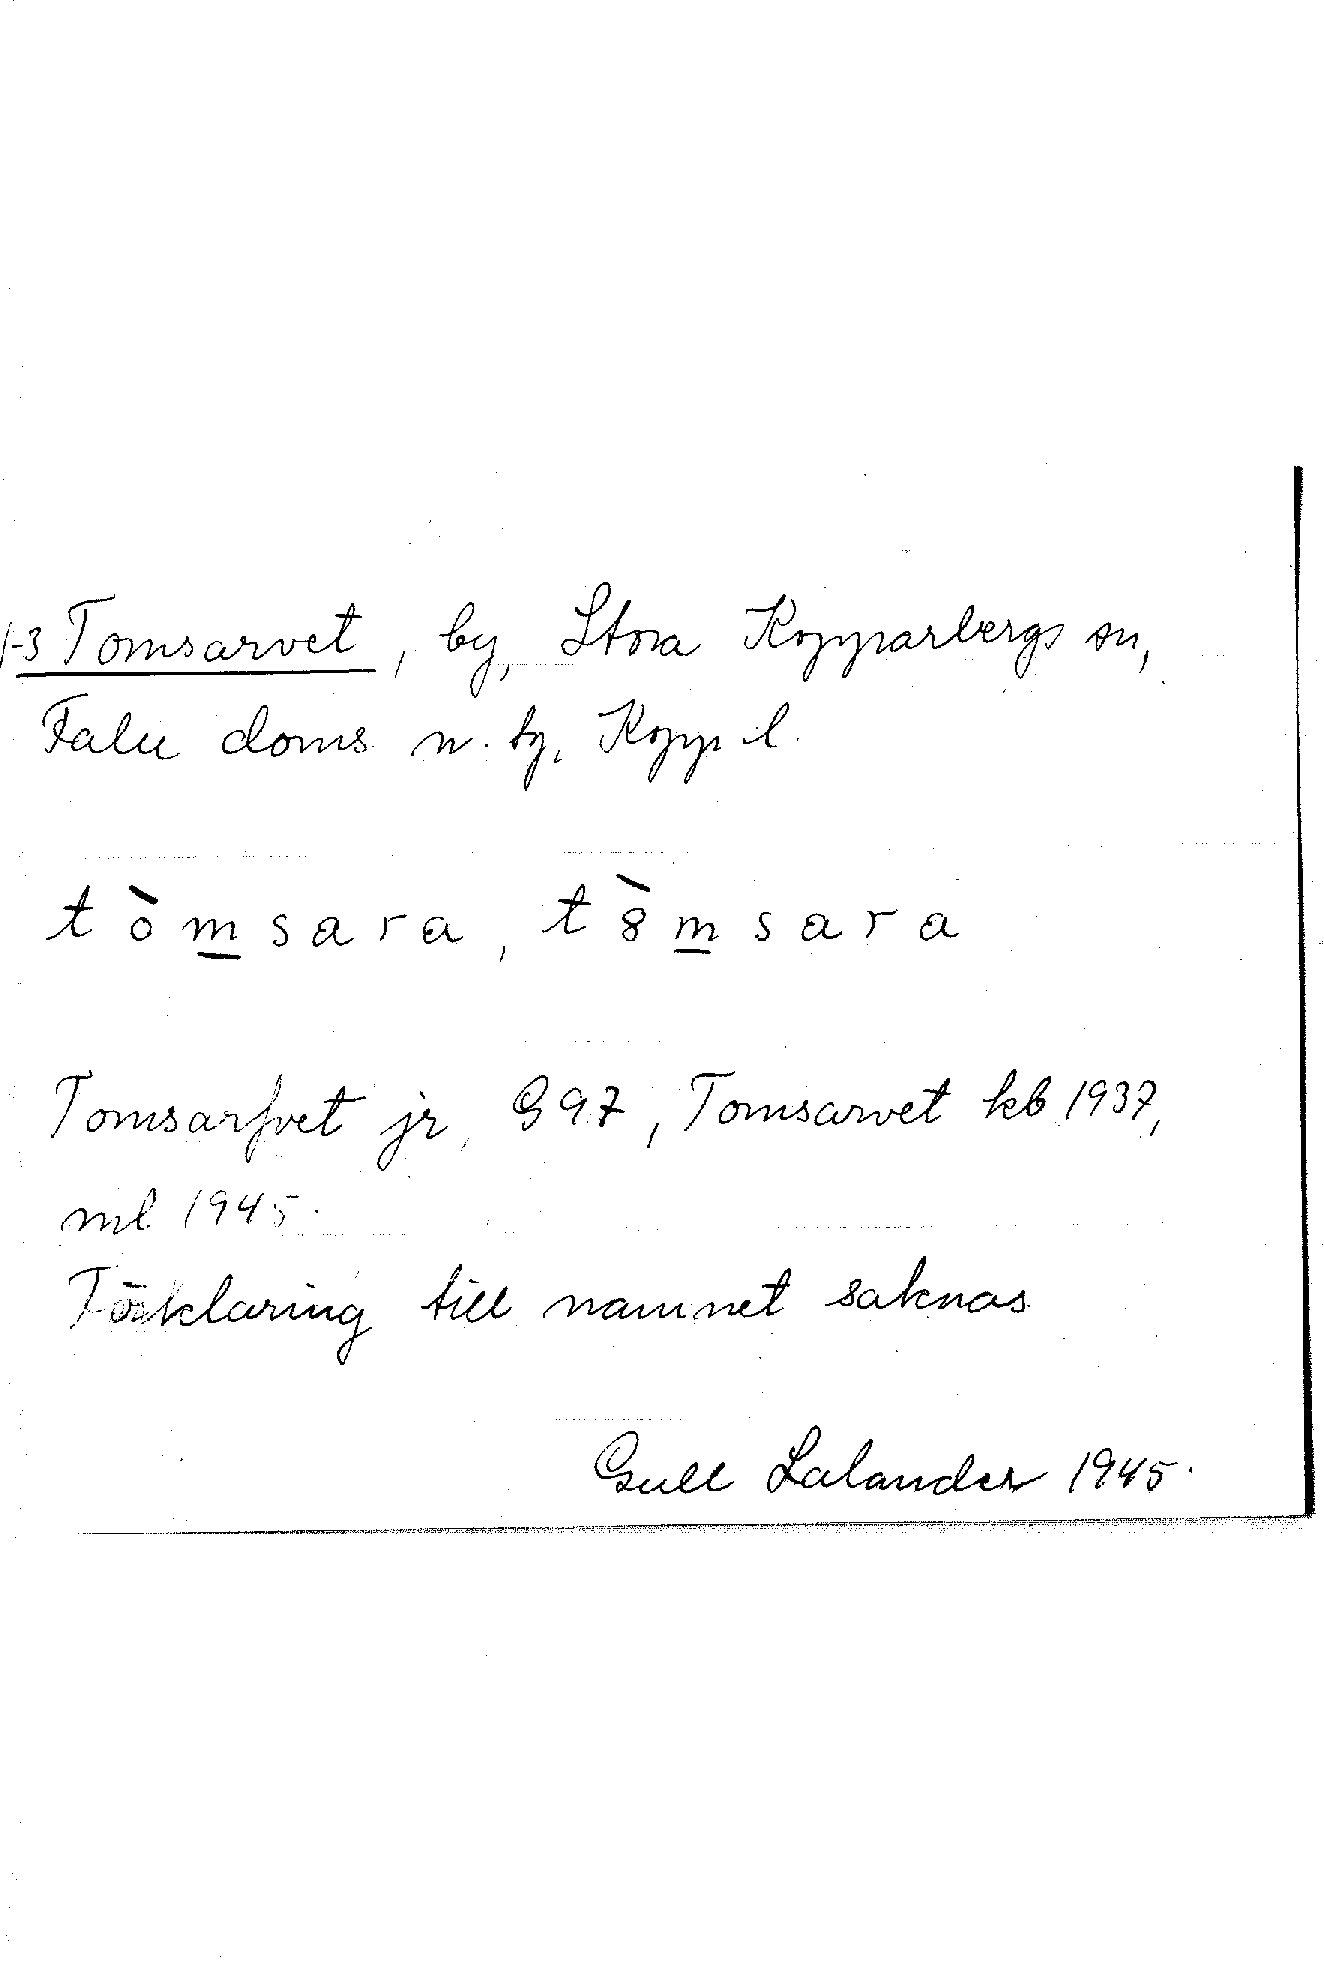 1-3 Tomsarvet, by, Stora Kopparbergs sn,
Falu doms n. tg, Kopp l.
tòm̲sara, t8̀m̲sara
Tomsarfvet jr, G 97, Tomsarvet kb 1937,
ml 1945.
Förklaring till namnet saknas
Gull Lalander 1945.